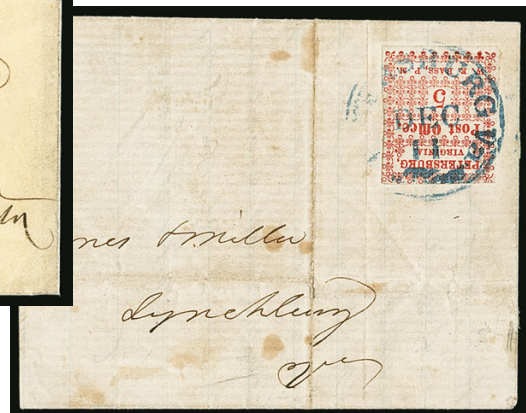 PETERSBURG
VIRGINIA
Post Office
5
E. BASS. P. M.
BURG Va.
DEC
11
nes & Miller
Lynchburg
Va